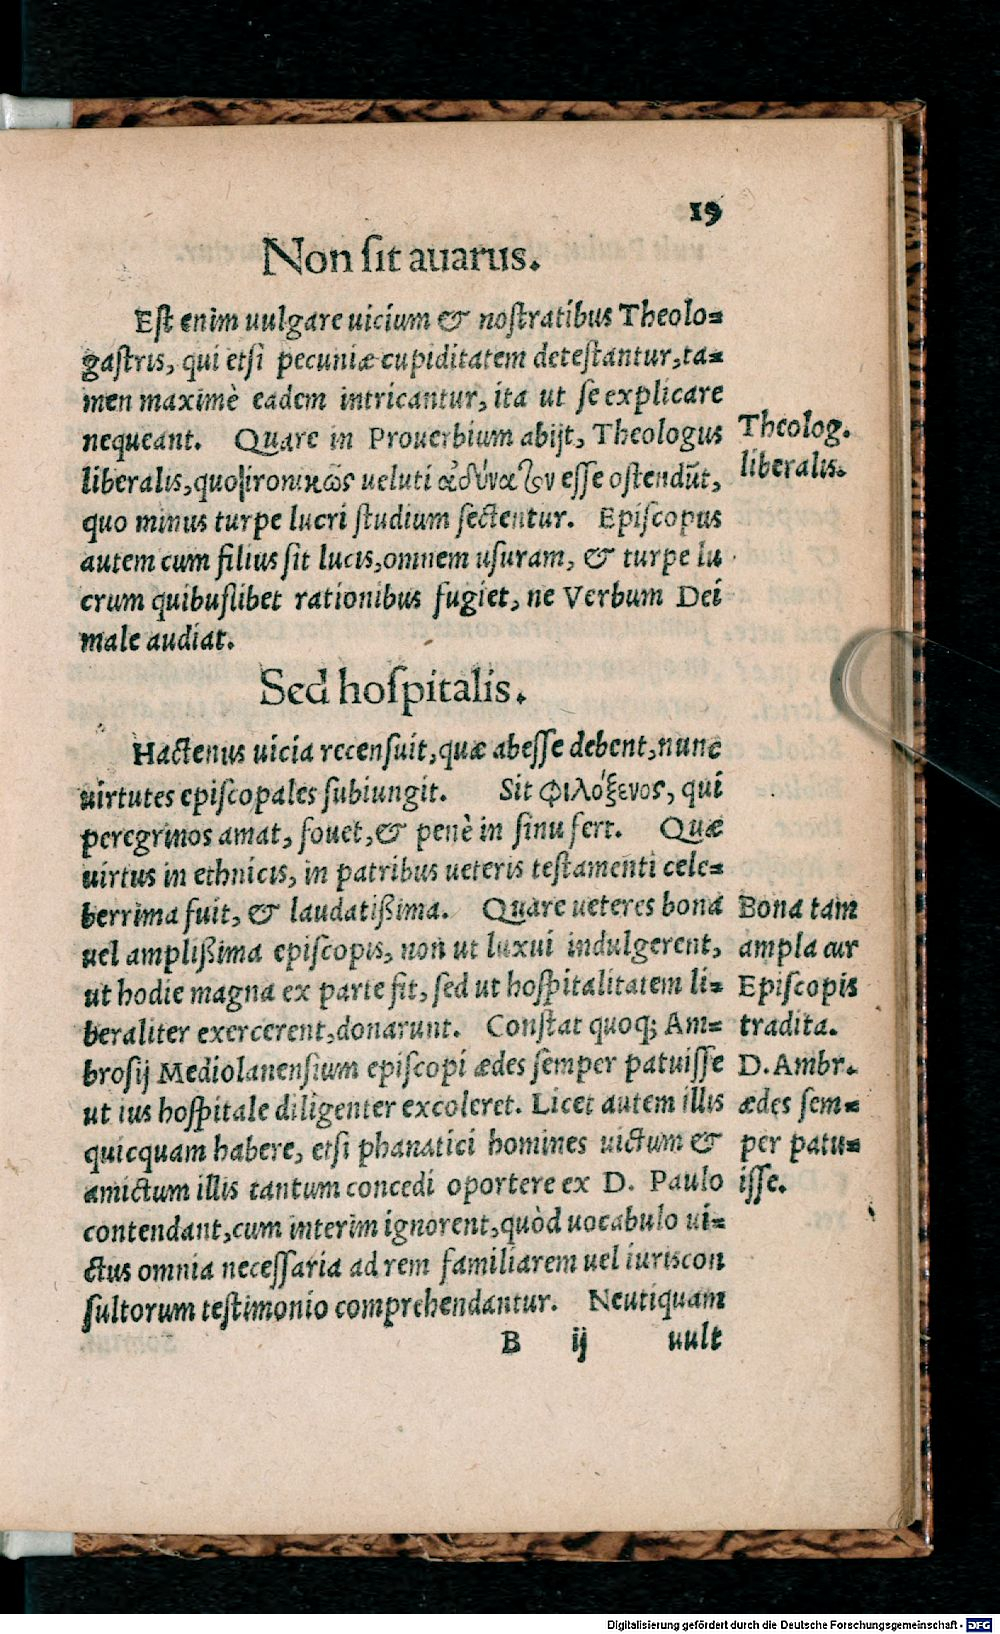 19
Non ſit auarus.
Eſt enim uulgare uicium & noſtratibus Theolo=
gaſtris, qui etſi pecuniæ cupiditatem deteſtantur, ta=
men maximè eadem intricantur, ita ut ſe explicare
nequeant. Quare in Prouerbium abijt, Theologus
liberalis, quo ironικῶς ueluti ἀδύνατον eſſe oſtendūt,
quo minus turpe lucri ſtudium ſectentur. Epiſcopus
autem cum filius ſit lucis, omnem uſuram, & turpe lu
crum quibuſlibet rationibus fugiet, ne Verbum Dei
male audiat.
Theolog.
liberalis.
Sed hoſpitalis.
Hactenus uicia recenſuit, quæ abeſſe debent, nunc
uirtutes epiſcopales ſubiungit. Sit φιλόξενος, qui
peregrinos amat, fouet, & penè in ſinu fert. Quæ
uirtus in ethnicis, in patribus ueteris teſtamenti cele=
berrima fuit, & laudatißima. Quare ueteres bona
uel amplißima epiſcopis, non ut luxui indulgerent,
ut hodie magna ex parte fit, ſed ut hoſpitalitatem li=
beraliter exercerent, donarunt. Conſtat quoq; Am=
broſij Mediolanenſium epiſcopi ædes ſemper patuiſſe
ut ius hoſpitale diligenter excoleret. Licet autem illis
quicquam habere, etſi phanatici homines uictum &
amictum illis tantum concedi oportere ex D. Paulo
contendant, cum interim ignorent, quòd uocabulo ui=
ctus omnia neceſſaria ad rem familiarem uel iuriscon
ſultorum teſtimonio comprehendantur. Neutiquam
Bona tam
ampla cur
Epiſcopis
tradita.
D. Ambr.
ædes ſem=
per patu=
iſſe.
B ij uult
Digitalisierung gefördert durch die Deutsche Forschungsgemeinschaft - DFG